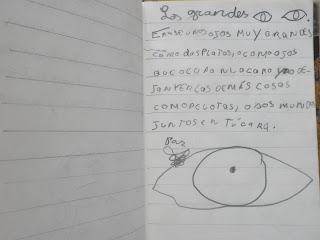 Los grandes
ERANSE UNOS OJOS MUY GRANDES
COMO DOS PLATOS, O COMO OJOS
QUE OCUPAN LA CARA Y NO DE-
JAN VER LAS DEMÁS COSAS
COMO PELOTAS, O DOS MUNDOS
JUNTOS EN TÚ CARA.
Paz